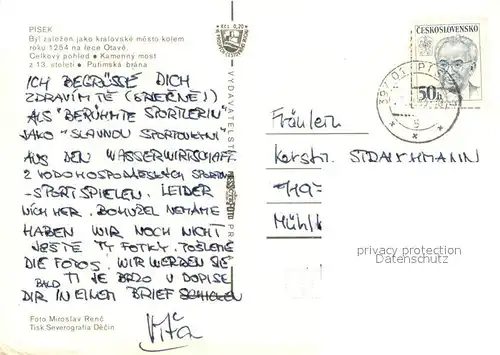 PÍSEK
Byl založen jako královské město kolem
roku 1254 na řece Otavě.
Celkový pohled • Kamenný most
z 13. století • Putimská brána
ICH BEGRÜSSE DICH
ZDRAVÍM TĚ (SRDEČNĚ!)
ALS "BERÜHMTE SPORTLERIN"
JAKO "SLAVNOU SPORTOVKYNI"
AUS DEN WASSERWIRTSCHAFT
Z VODOHOSPODÁŘSKÝCH SPORTOV
-SPORTSPIELEN. LEIDER
NICH HER. BOHUŽEL NEMÁME
HABEN WIR NOCH NICHT
JEŠTĚ TY FOTKY. POŠLEME
DIE FOTOS. WIR WERDEN SIE
BALD TI JE BRZO V DOPISE
DIR IN EINEM BRIEF SCHICKEN
Víťa
Foto Miroslav Renč
Tisk Severografia Děčín
Kčs 0,20
VYDAVATELSTVÍ
PRESSFOTO
PR
ČESKOSLOVENSKO
50h
397 01 P
5
Fräulein
Kerstin STRAKHMANN
Mühl
privacy protection
DAKNSCHUTZ